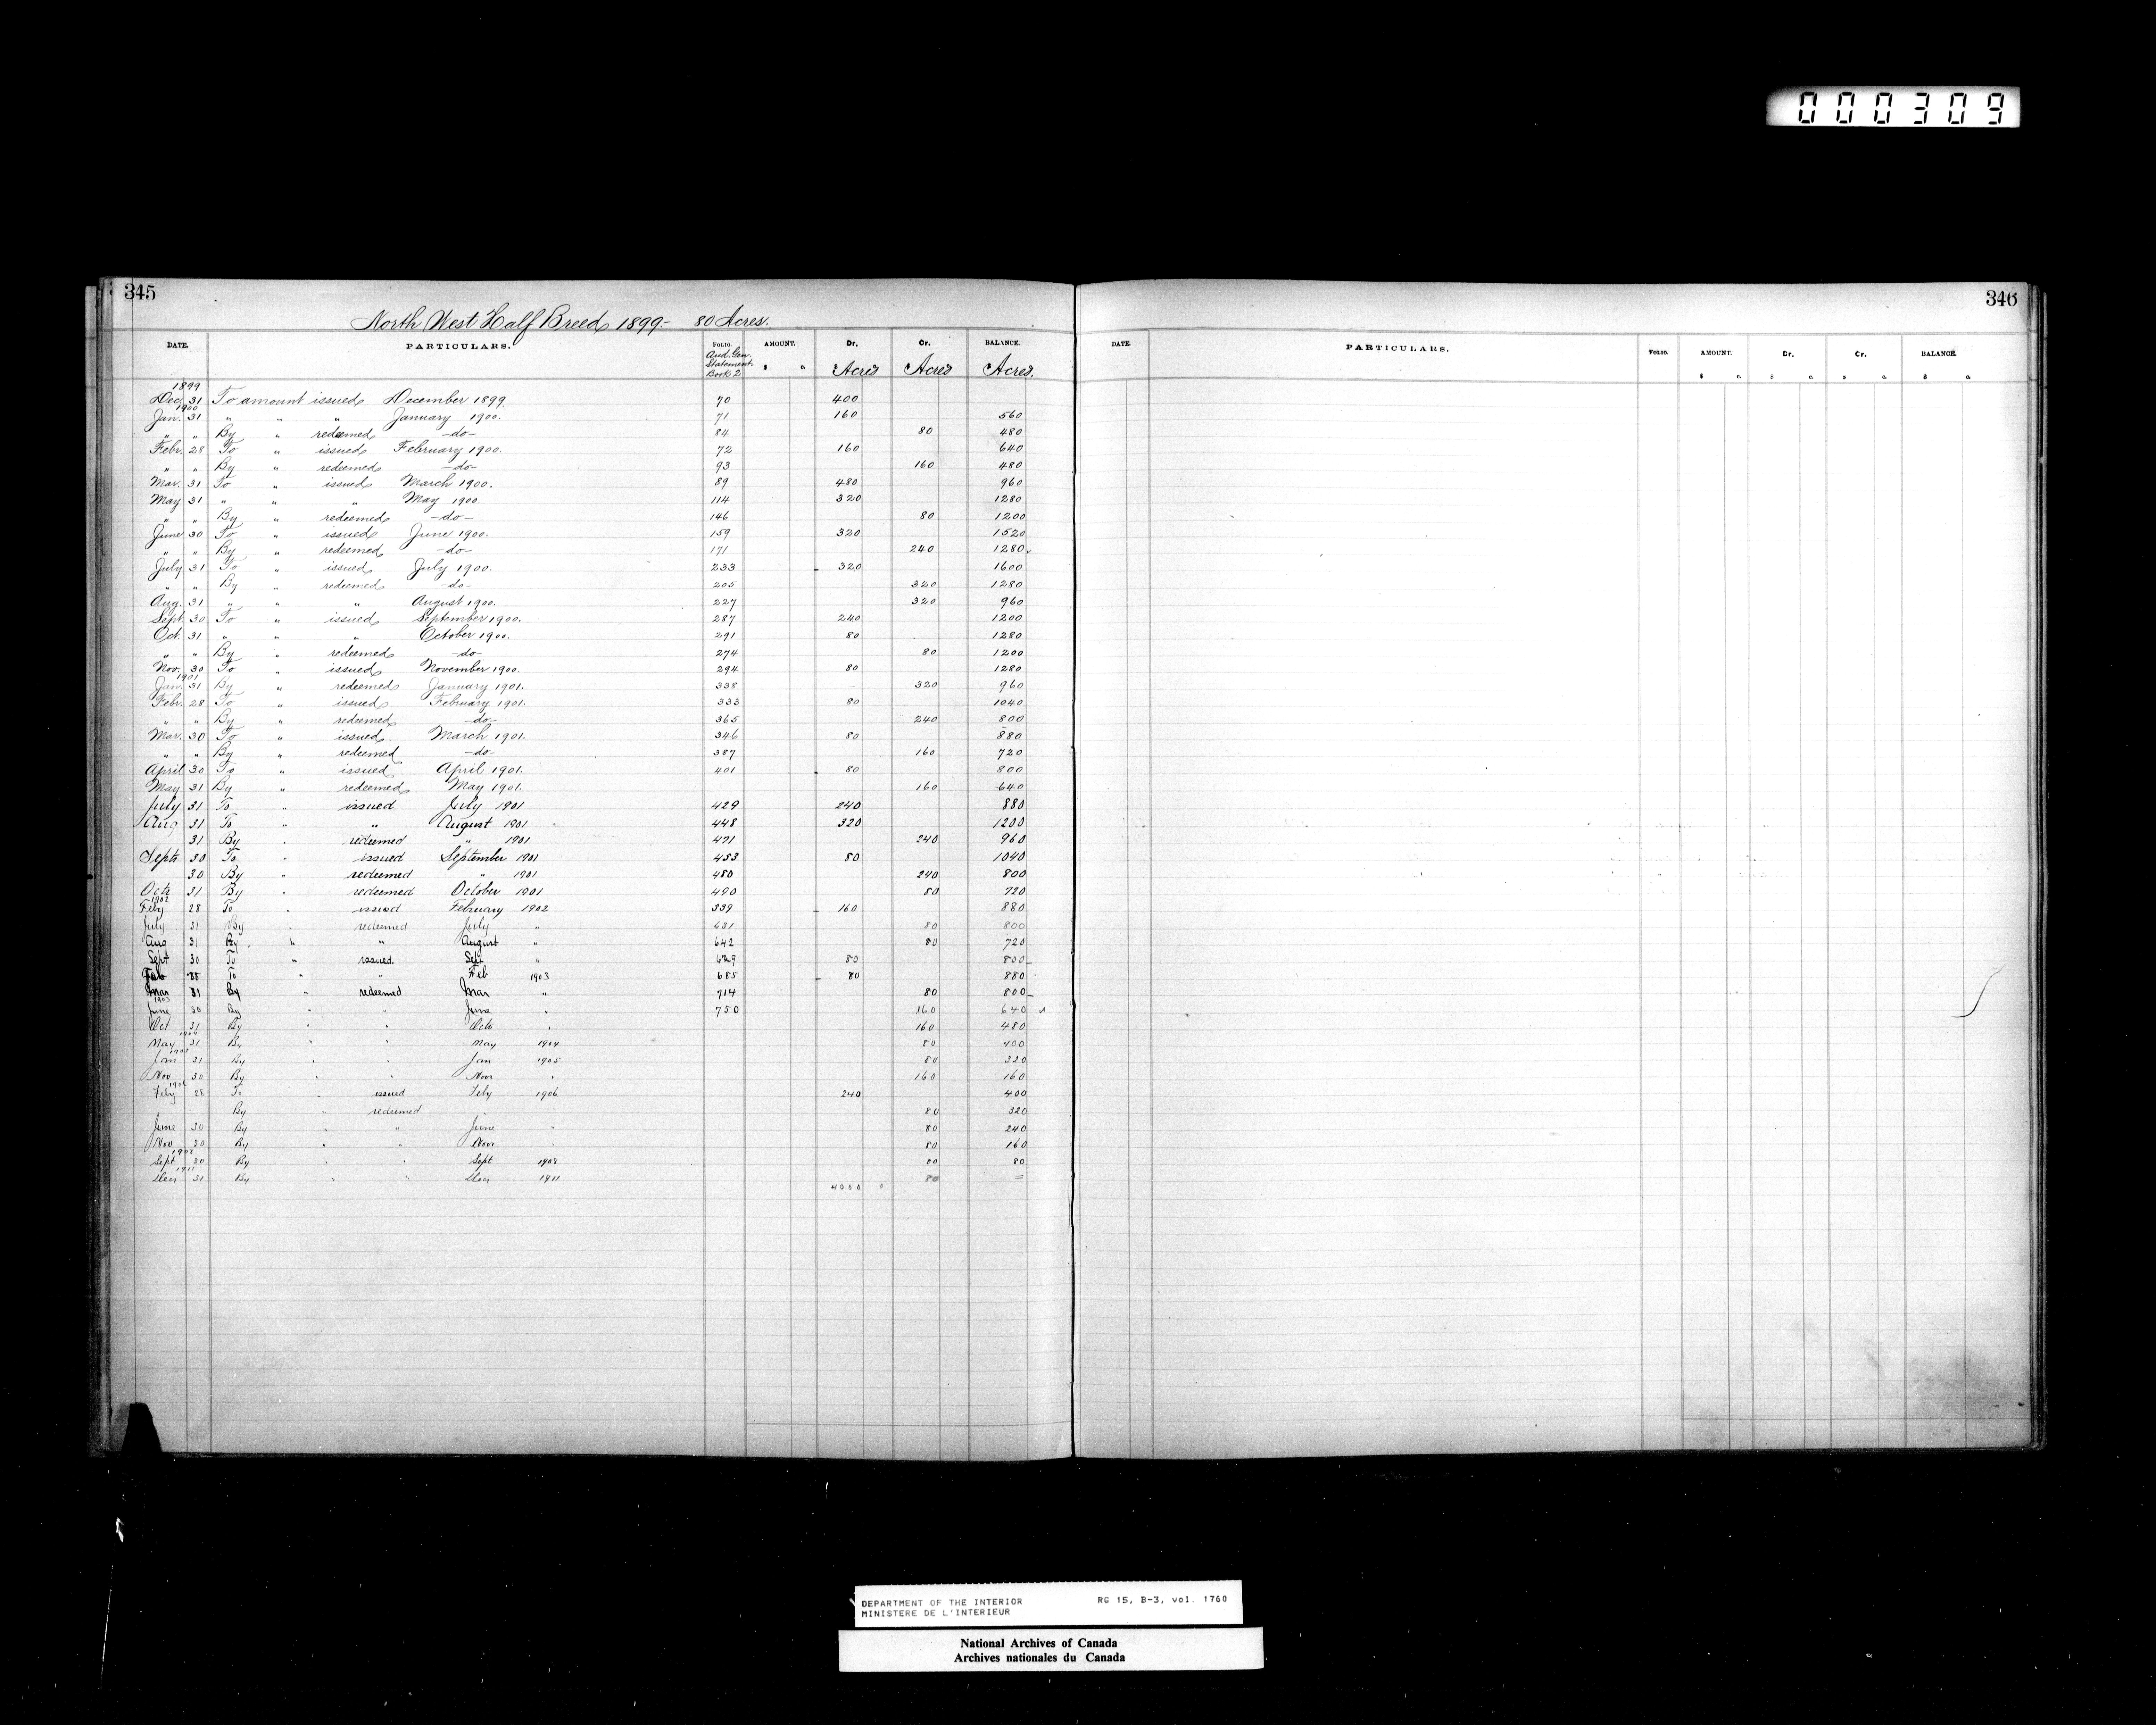 000309
345
North West Half Breed 1899- 80 Acres.
DATE. PARTICULARS. FOLIO. Aud. Gen. Statement Book 2 AMOUNT. $ c. Dr. Acres Cr. Acres BALANCE. Acres.
1899
Dec. 31 To amount issued December 1899 70 400
1900
Jan. 31 " " " January 1900. 71 160 560
" " By " redeemed -do- 84 80 480
Febr. 28 To " issued February 1900. 72 160 640
" " By " redeemed -do- 93 160 480
Mar. 31 To " issued March 1900. 89 480 960
May 31 " " " May 1900 114 320 1280
" " By " redeemed -do- 146 80 1200
June 30 To " issued June 1900. 159 320 1520
" " By " redeemed -do- 171 240 1280
July 31 To " issued July 1900. 233 320 1600
" " By " redeemed -do- 205 320 1280
Aug. 31 " " " August 1900. 227 320 960
Sept. 30 To " issued September 1900. 287 240 1200
Oct. 31 " " " October 1900. 291 80 1280
" " By " redeemed -do- 274 80 1200
Nov. 30 To " issued November 1900. 294 80 1280
1901
Jan. 31 By " redeemed January 1901. 338 320 960
Febr. 28 To " issued February 1901. 333 80 1040
" " By " redeemed -do- 365 240 800
Mar. 30 To " issued March 1901. 346 80 880
" " By " redeemed -do- 387 160 720
April 30 To " issued April 1901. 401 80 800
May 31 By " redeemed May 1901. 160 640
July 31 To " issued July 1901 429 240 880
Aug 31 To " " August 1901 448 320 1200
31 By " redeemed " 1901 471 240 960
Septr 30 To " issued September 1901 453 80 1040
30 By " redeemed " 1901 480 240 800
Octr 31 By " redeemed October 1901 490 80 720
1902
Feby 28 To " issued February 1902 339 160 880
July 31 By " redeemed July " 631 80 800
Aug 31 By " " August " 642 80 720
Sept 30 To " issued Sept " 629 80 800
Feb 28 To " " Feb 1903 685 80 880
Mar 31 By " redeemed Mar " 714 80 800
1903
June 30 By " " June " 750 160 640
Oct 31 By " " Octr " 160 480
1904
May 31 By " " May 1904 80 400
1905
Jan 31 By " " Jan 1905 80 320
Nov 30 By " " Novr " 160 160
1906
Feby 28 To " issued Feby 1906 240 400
By " redeemed " 80 320
June 30 By " " June " 80 240
Nov 30 By " " Novr " 80 160
1908
Sept 30 By " " Sept 1908 80 80
1911
Decr 31 By " " Decr 1911 80 =
4000
346
DATE. PARTICULARS. FOLIO. AMOUNT. $ c. Dr. $ c. Cr. $ c. BALANCE. $ c.
DEPARTMENT OF THE INTERIOR RG 15, B-3, vol. 1760
MINISTERE DE L'INTERIEUR
National Archives of Canada
Archives nationales du Canada